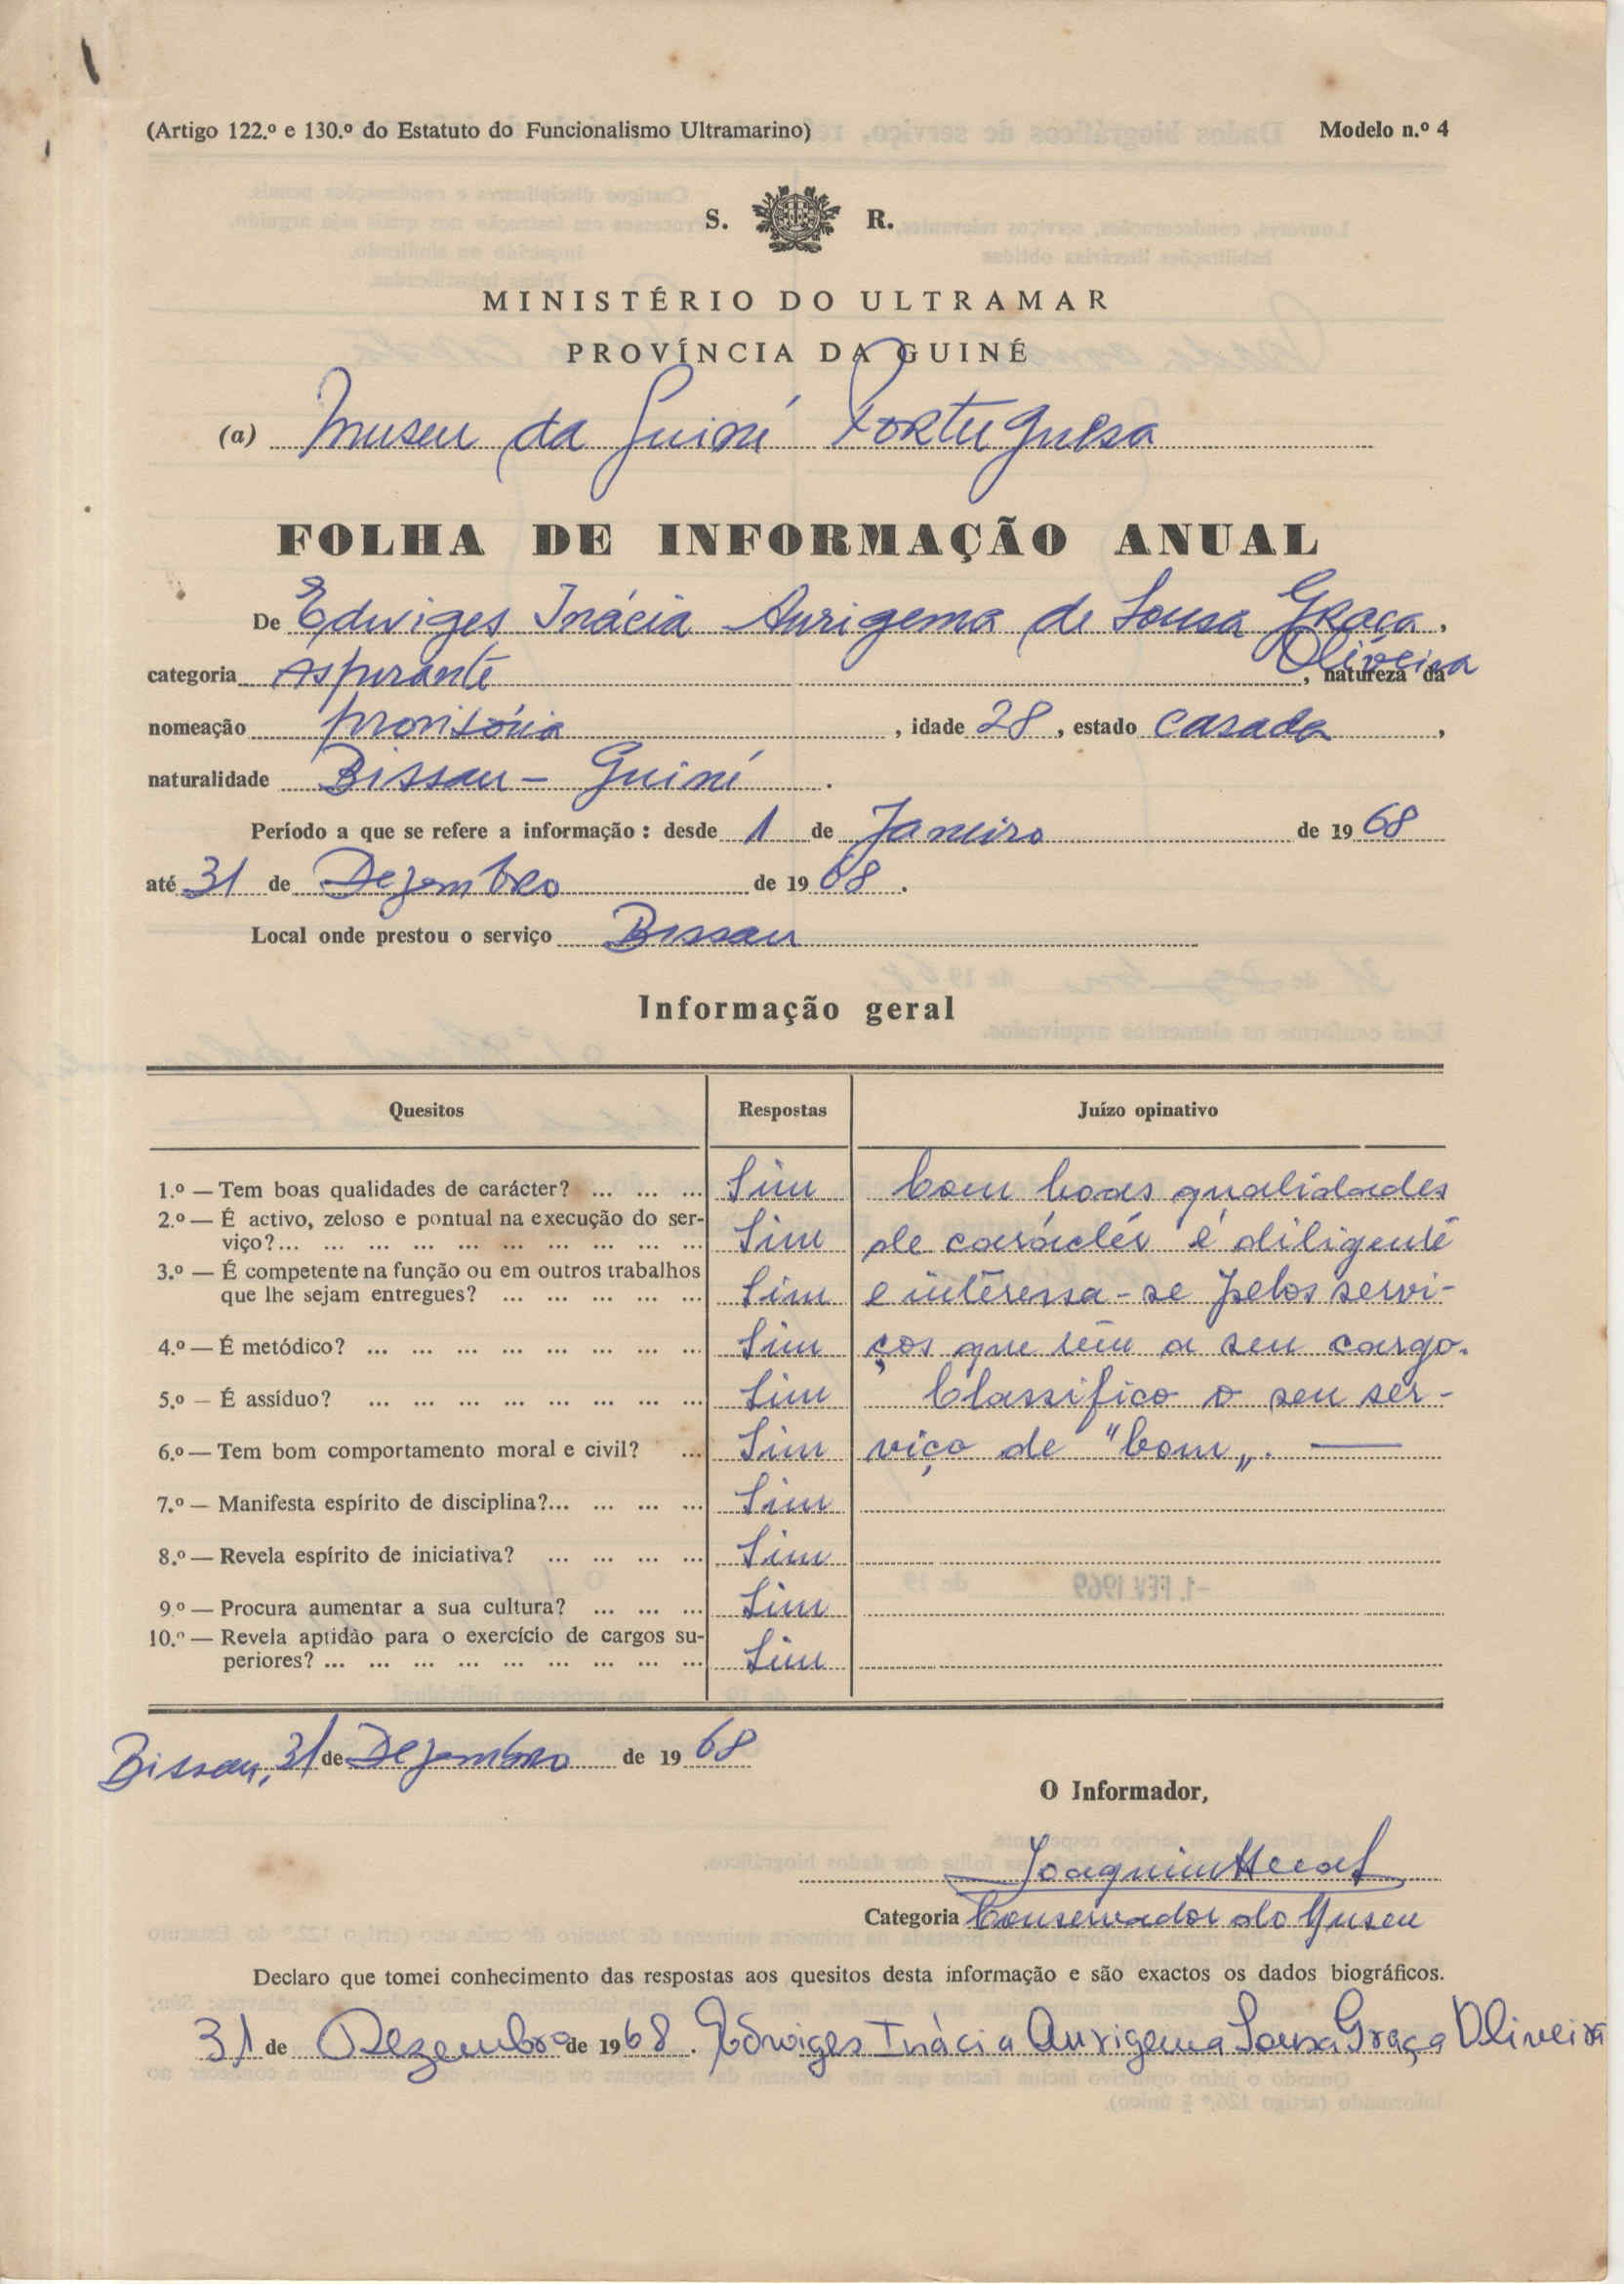 (Artigo 122.º e 130.º do Estatuto do Funcionalismo Ultramarino) Modelo n.º 4
S. R.
MINISTÉRIO DO ULTRAMAR
PROVÍNCIA DA GUINÉ
(a) Museu da Guiné Portuguesa
FOLHA DE INFORMAÇÃO ANUAL
De Edwiges Inácia Aurigema de Sousa Graça,
Oliveira
categoria Aspirante, natureza da
nomeação provisória, idade 28, estado casada,
naturalidade Bissau - Guiné.
Período a que se refere a informação: desde 1 de Janeiro de 1968
até 31 de Dezembro de 1968.
Local onde prestou o serviço Bissau
Informação geral
Quesitos Respostas Juízo opinativo
1.º — Tem boas qualidades de carácter? ... ... ... Sim Com boas qualidades
2.º — É activo, zeloso e pontual na execução do ser-
viço?... ... ... ... ... ... ... ... ... ... Sim de carácter é diligente
3.º — É competente na função ou em outros trabalhos
que lhe sejam entregues? ... ... ... ... ... Sim e interessa-se pelos servi-
4.º — É metódico? ... ... ... ... ... ... ... ... Sim ços que tem a seu cargo.
5.º — É assíduo? ... ... ... ... ... ... ... ... Sim Classifico o seu ser-
6.º — Tem bom comportamento moral e civil? ... Sim viço de "bom„. —
7.º — Manifesta espírito de disciplina?... ... ... ... Sim
8.º — Revela espírito de iniciativa? ... ... ... ... Sim
9.º — Procura aumentar a sua cultura? ... ... ... Sim
10.º — Revela aptidão para o exercício de cargos su-
periores? ... ... ... ... ... ... ... ... ... Sim
Bissau, 31 de Dezembro de 1968
O Informador,
Joaquim
Categoria Conservador do Museu
Declaro que tomei conhecimento das respostas aos quesitos desta informação e são exactos os dados biográficos.
31 de Dezembro de 1968. Edwiges Inácia Aurigema Sousa Graça Oliveira